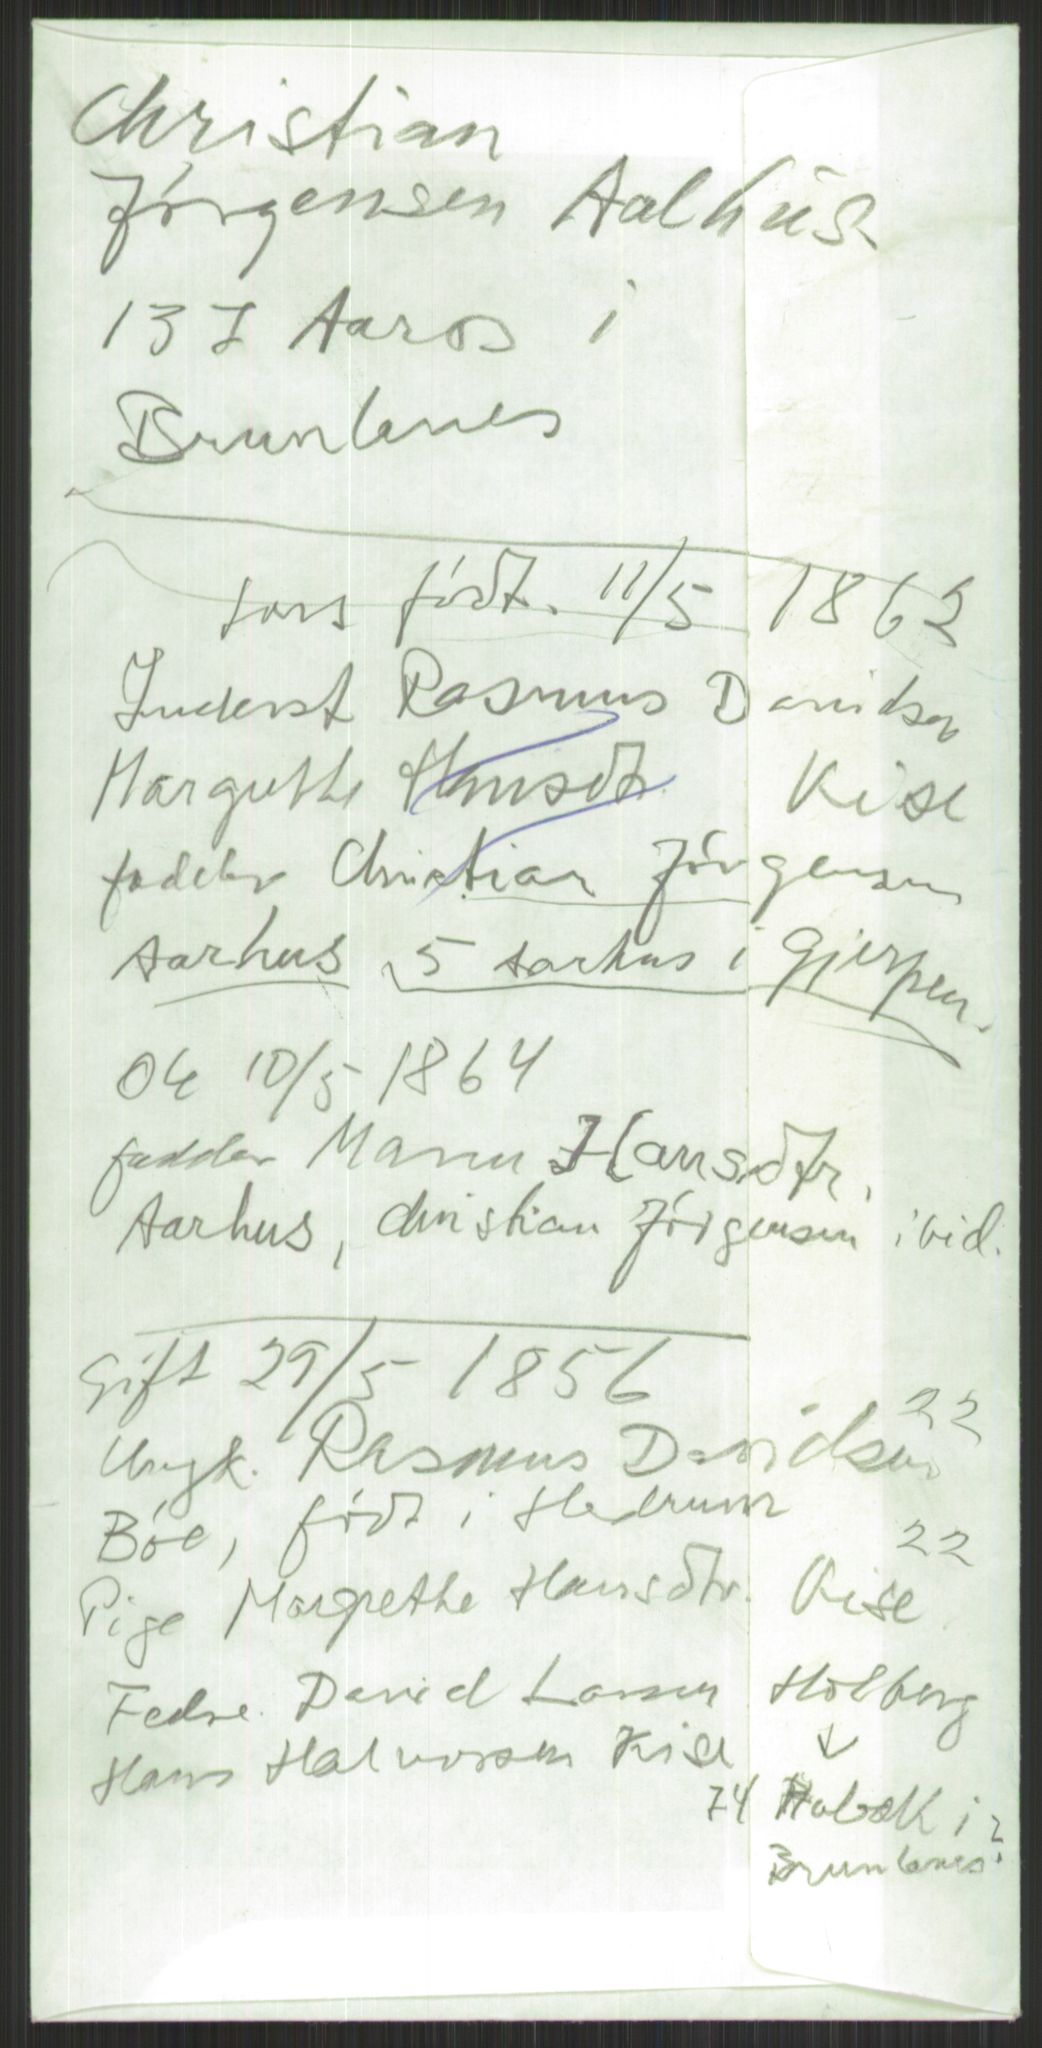 Christian
Jörgensen Aalhus
137 Aaros i
Brunlanes
Lars födt. 11/5 1862
Inderst Rasmus Davidsen
Margrethe Hansdtr. Kise
fadder Christian Jörgensen
Aarhus 5 Aarhus i Gjerpen.
Ole 10/5 1864
fadder Maren Hansdtr.
Aarhus, Christian Jörgensen ibid.
Gift 29/5 1856
Ungk. Rasmus Davidsen 22
Böe, födt i Hedrum
Pige Margrethe Hansdtr. Kise 22
Fedre. David Larsen Holberg
Hans Halvorsen Kise ↓
74 i
Brunlanes?